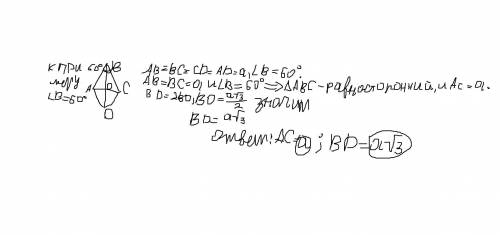 к при 60° B
меру A C
∠B=60° O
D
AB=BC=CD=AD=a, ∠B=60°.
AB=BC=a, и ∠B=60° ⇒ △ABC-равносторонний, и AC=a.
BD=2BO, BO=a√3/2 значит
BD=a√3
ответ: AC=a; BD=a√3